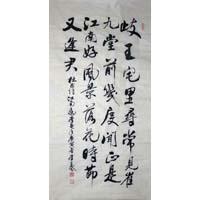 岐王宅里尋常見崔
九堂前幾度聞正是
江南好風景落花時節
又逢君 杜甫詩江南逢李龜年